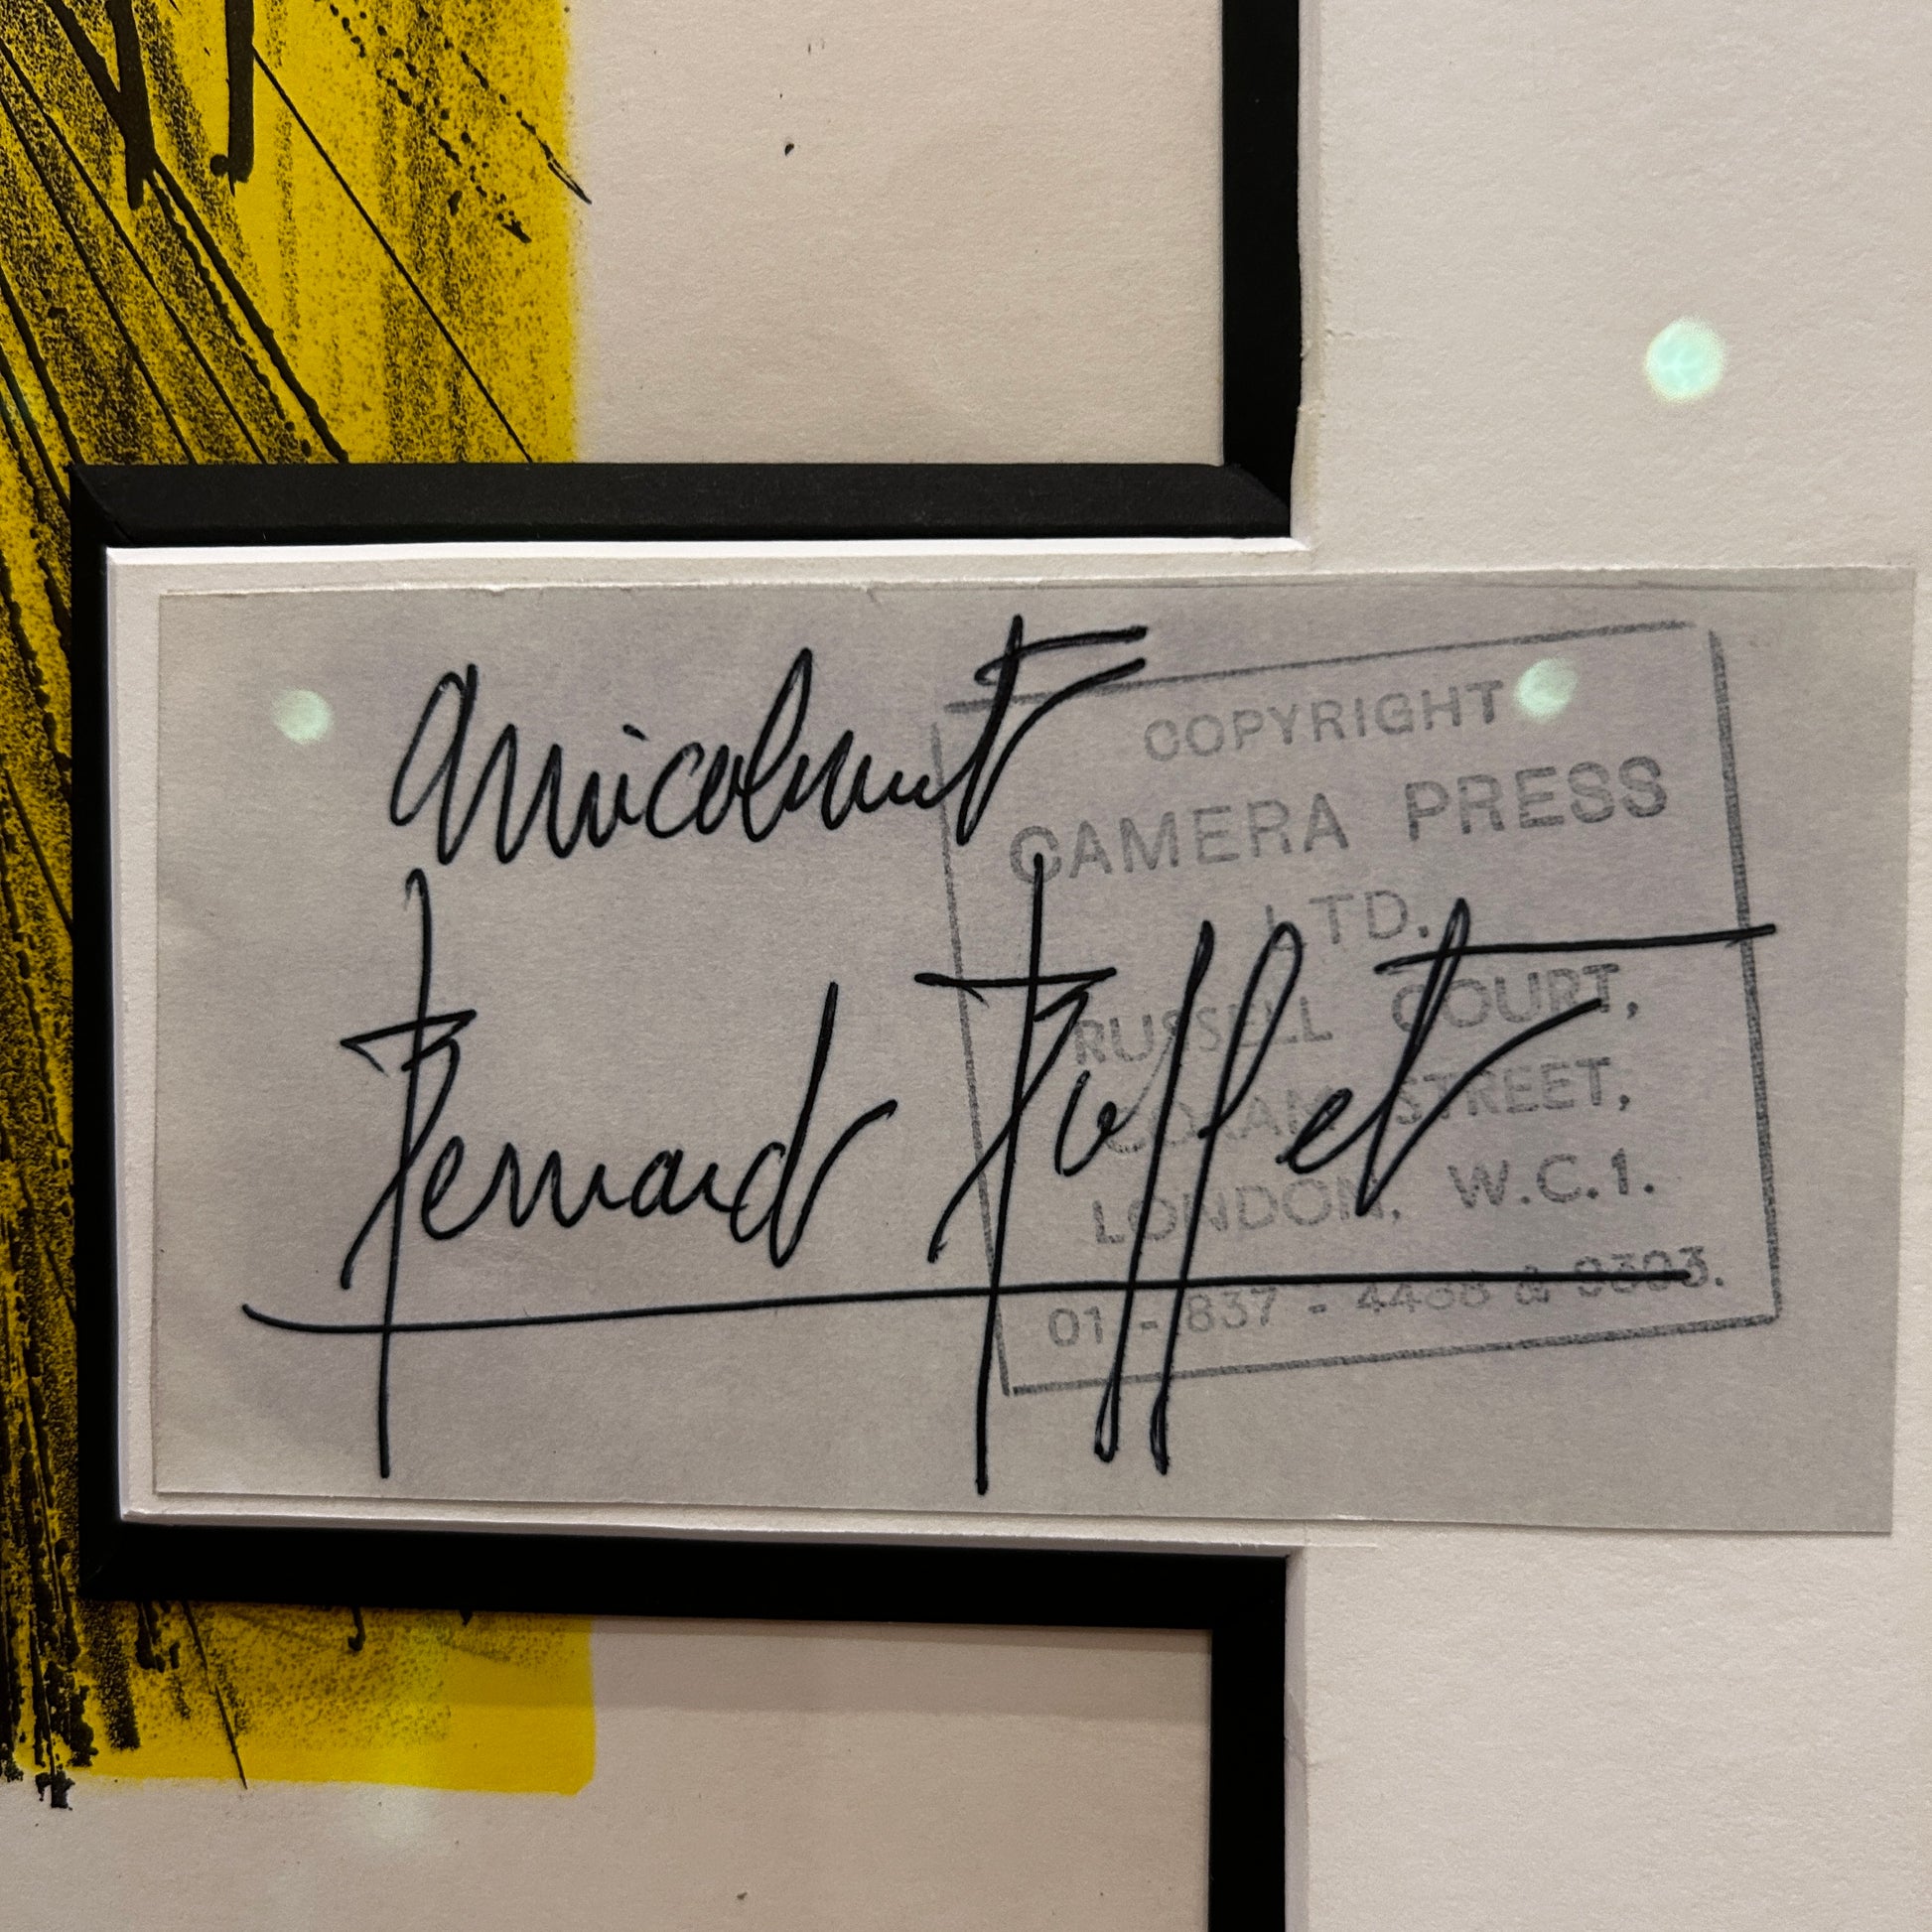 amicalement
Bernard Buffet
COPYRIGHT
CAMERA PRESS
LTD.
RUSSELL COURT,
CORAM STREET,
LONDON, W.C.1.
01 - 837 - 4488 & 9393.